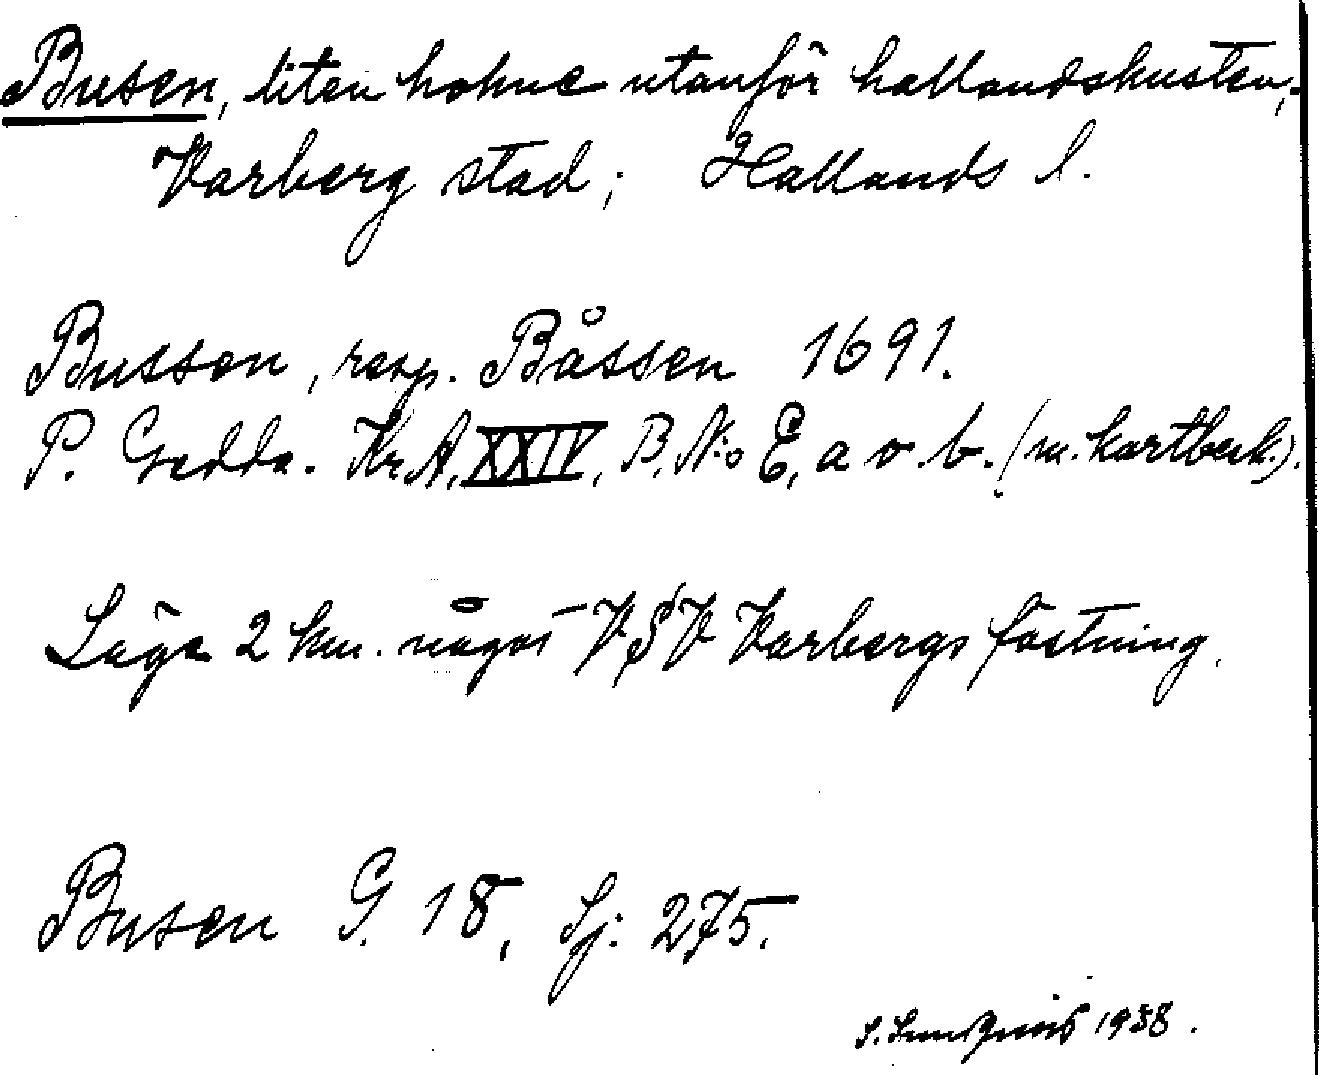 Busen, liten holme utanför hallandskusten,
Varberg stad; Hallands l.
Bussen, resp. Båssen 1691.
P. Gedda. Kr. A. XXIV, B. N:o E, a o. b. (m. kartbesk.).
Läge 2 km. något V Varbergs fästning.
Busen G. 18, Sj: 275.
1938.